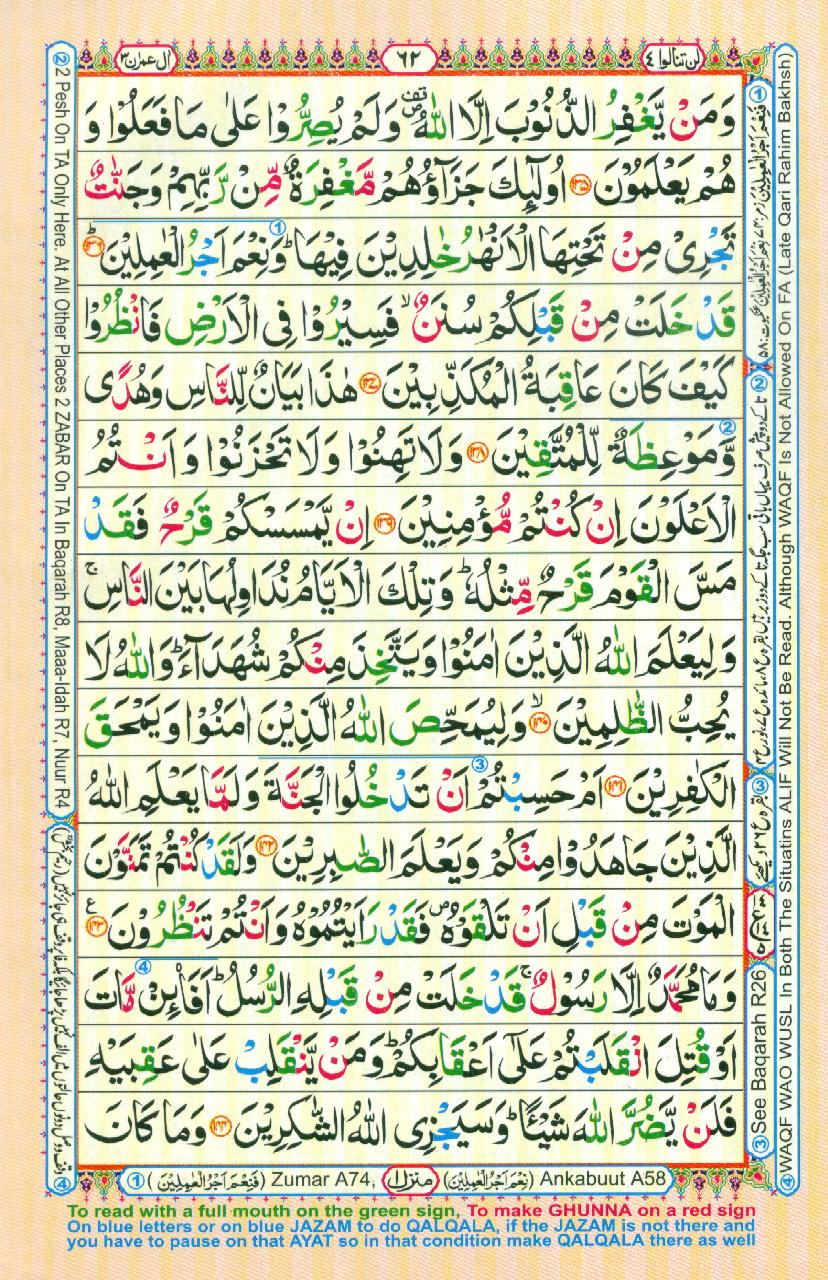 اٰل عمرٰن ٣
٦٢
لن تنالوا ٤
وَمَنْ يَّغْفِرُ الذُّنُوْبَ اِلَّا اللّٰهُ ۪۫ وَلَمْ يُصِرُّوْا عَلٰى مَا فَعَلُوْا وَ
هُمْ يَعْلَمُوْنَ ﴿۱۳۵﴾ اُولٰٓئِكَ جَزَآؤُهُمْ مَّغْفِرَةٌ مِّنْ رَّبِّهِمْ وَجَنّٰتٌ
تَجْرِيْ مِنْ تَحْتِهَا الْاَنْهٰرُ خٰلِدِيْنَ فِيْهَا ؕ وَنِعْمَ اَجْرُ الْعٰمِلِيْنَ ؕ﴿۱۳۶﴾
قَدْ خَلَتْ مِنْ قَبْلِكُمْ سُنَنٌ ۙ فَسِيْرُوْا فِى الْاَرْضِ فَانْظُرُوْا
كَيْفَ كَانَ عَاقِبَةُ الْمُكَذِّبِيْنَ ﴿۱۳۷﴾ هٰذَا بَيَانٌ لِّلنَّاسِ وَهُدًى
وَّمَوْعِظَةٌ لِّلْمُتَّقِيْنَ ﴿۱۳۸﴾ وَلَا تَهِنُوْا وَلَا تَحْزَنُوْا وَاَنْتُمُ
الْاَعْلَوْنَ اِنْ كُنْتُمْ مُّؤْمِنِيْنَ ﴿۱۳۹﴾ اِنْ يَّمْسَسْكُمْ قَرْحٌ فَقَدْ
مَسَّ الْقَوْمَ قَرْحٌ مِّثْلُهٗ ؕ وَتِلْكَ الْاَيَّامُ نُدَاوِلُهَا بَيْنَ النَّاسِ ۚ
وَلِيَعْلَمَ اللّٰهُ الَّذِيْنَ اٰمَنُوْا وَيَتَّخِذَ مِنْكُمْ شُهَدَآءَ ؕ وَاللّٰهُ لَا
يُحِبُّ الظّٰلِمِيْنَ ۙ﴿۱۴۰﴾ وَلِيُمَحِّصَ اللّٰهُ الَّذِيْنَ اٰمَنُوْا وَيَمْحَقَ
الْكٰفِرِيْنَ ﴿۱۴۱﴾ اَمْ حَسِبْتُمْ اَنْ تَدْخُلُوا الْجَنَّةَ وَلَمَّا يَعْلَمِ اللّٰهُ
الَّذِيْنَ جَاهَدُوْا مِنْكُمْ وَيَعْلَمَ الصّٰبِرِيْنَ ﴿۱۴۲﴾ وَلَقَدْ كُنْتُمْ تَمَنَّوْنَ
الْمَوْتَ مِنْ قَبْلِ اَنْ تَلْقَوْهُ ۪ فَقَدْ رَاَيْتُمُوْهُ وَاَنْتُمْ تَنْظُرُوْنَ ﴿۱۴۳﴾ ع
وَمَا مُحَمَّدٌ اِلَّا رَسُوْلٌ ۚ قَدْ خَلَتْ مِنْ قَبْلِهِ الرُّسُلُ ؕ اَفَا۠ئِنْ مَّاتَ
اَوْ قُتِلَ انْقَلَبْتُمْ عَلٰٓى اَعْقَابِكُمْ ؕ وَمَنْ يَّنْقَلِبْ عَلٰى عَقِبَيْهِ
فَلَنْ يَّضُرَّ اللّٰهَ شَيْئًا ؕ وَسَيَجْزِى اللّٰهُ الشّٰكِرِيْنَ ﴿۱۴۴﴾ وَمَا كَانَ
② 2 Pesh On TA Only Here. At All Other Places 2 ZABAR On TA In Baqarah R8, Maaa-Idah R7, Nuur R4
③ See Baqarah R26
④ WAQF WAO WUSL In Both The Situatins ALIF Will Not Be Read. Although WAQF Is Not Allowed On FA (Late Qari Rahim Bakhsh)
① (فَنِعْمَ اَجْرُ الْعٰمِلِيْنَ) Zumar A74, منزل ١ (نِعْمَ اَجْرُ الْعٰمِلِيْنَ) Ankabuut A58
To read with a full mouth on the green sign, To make GHUNNA on a red sign
On blue letters or on blue JAZAM to do QALQALA, if the JAZAM is not there and
you have to pause on that AYAT so in that condition make QALQALA there as well